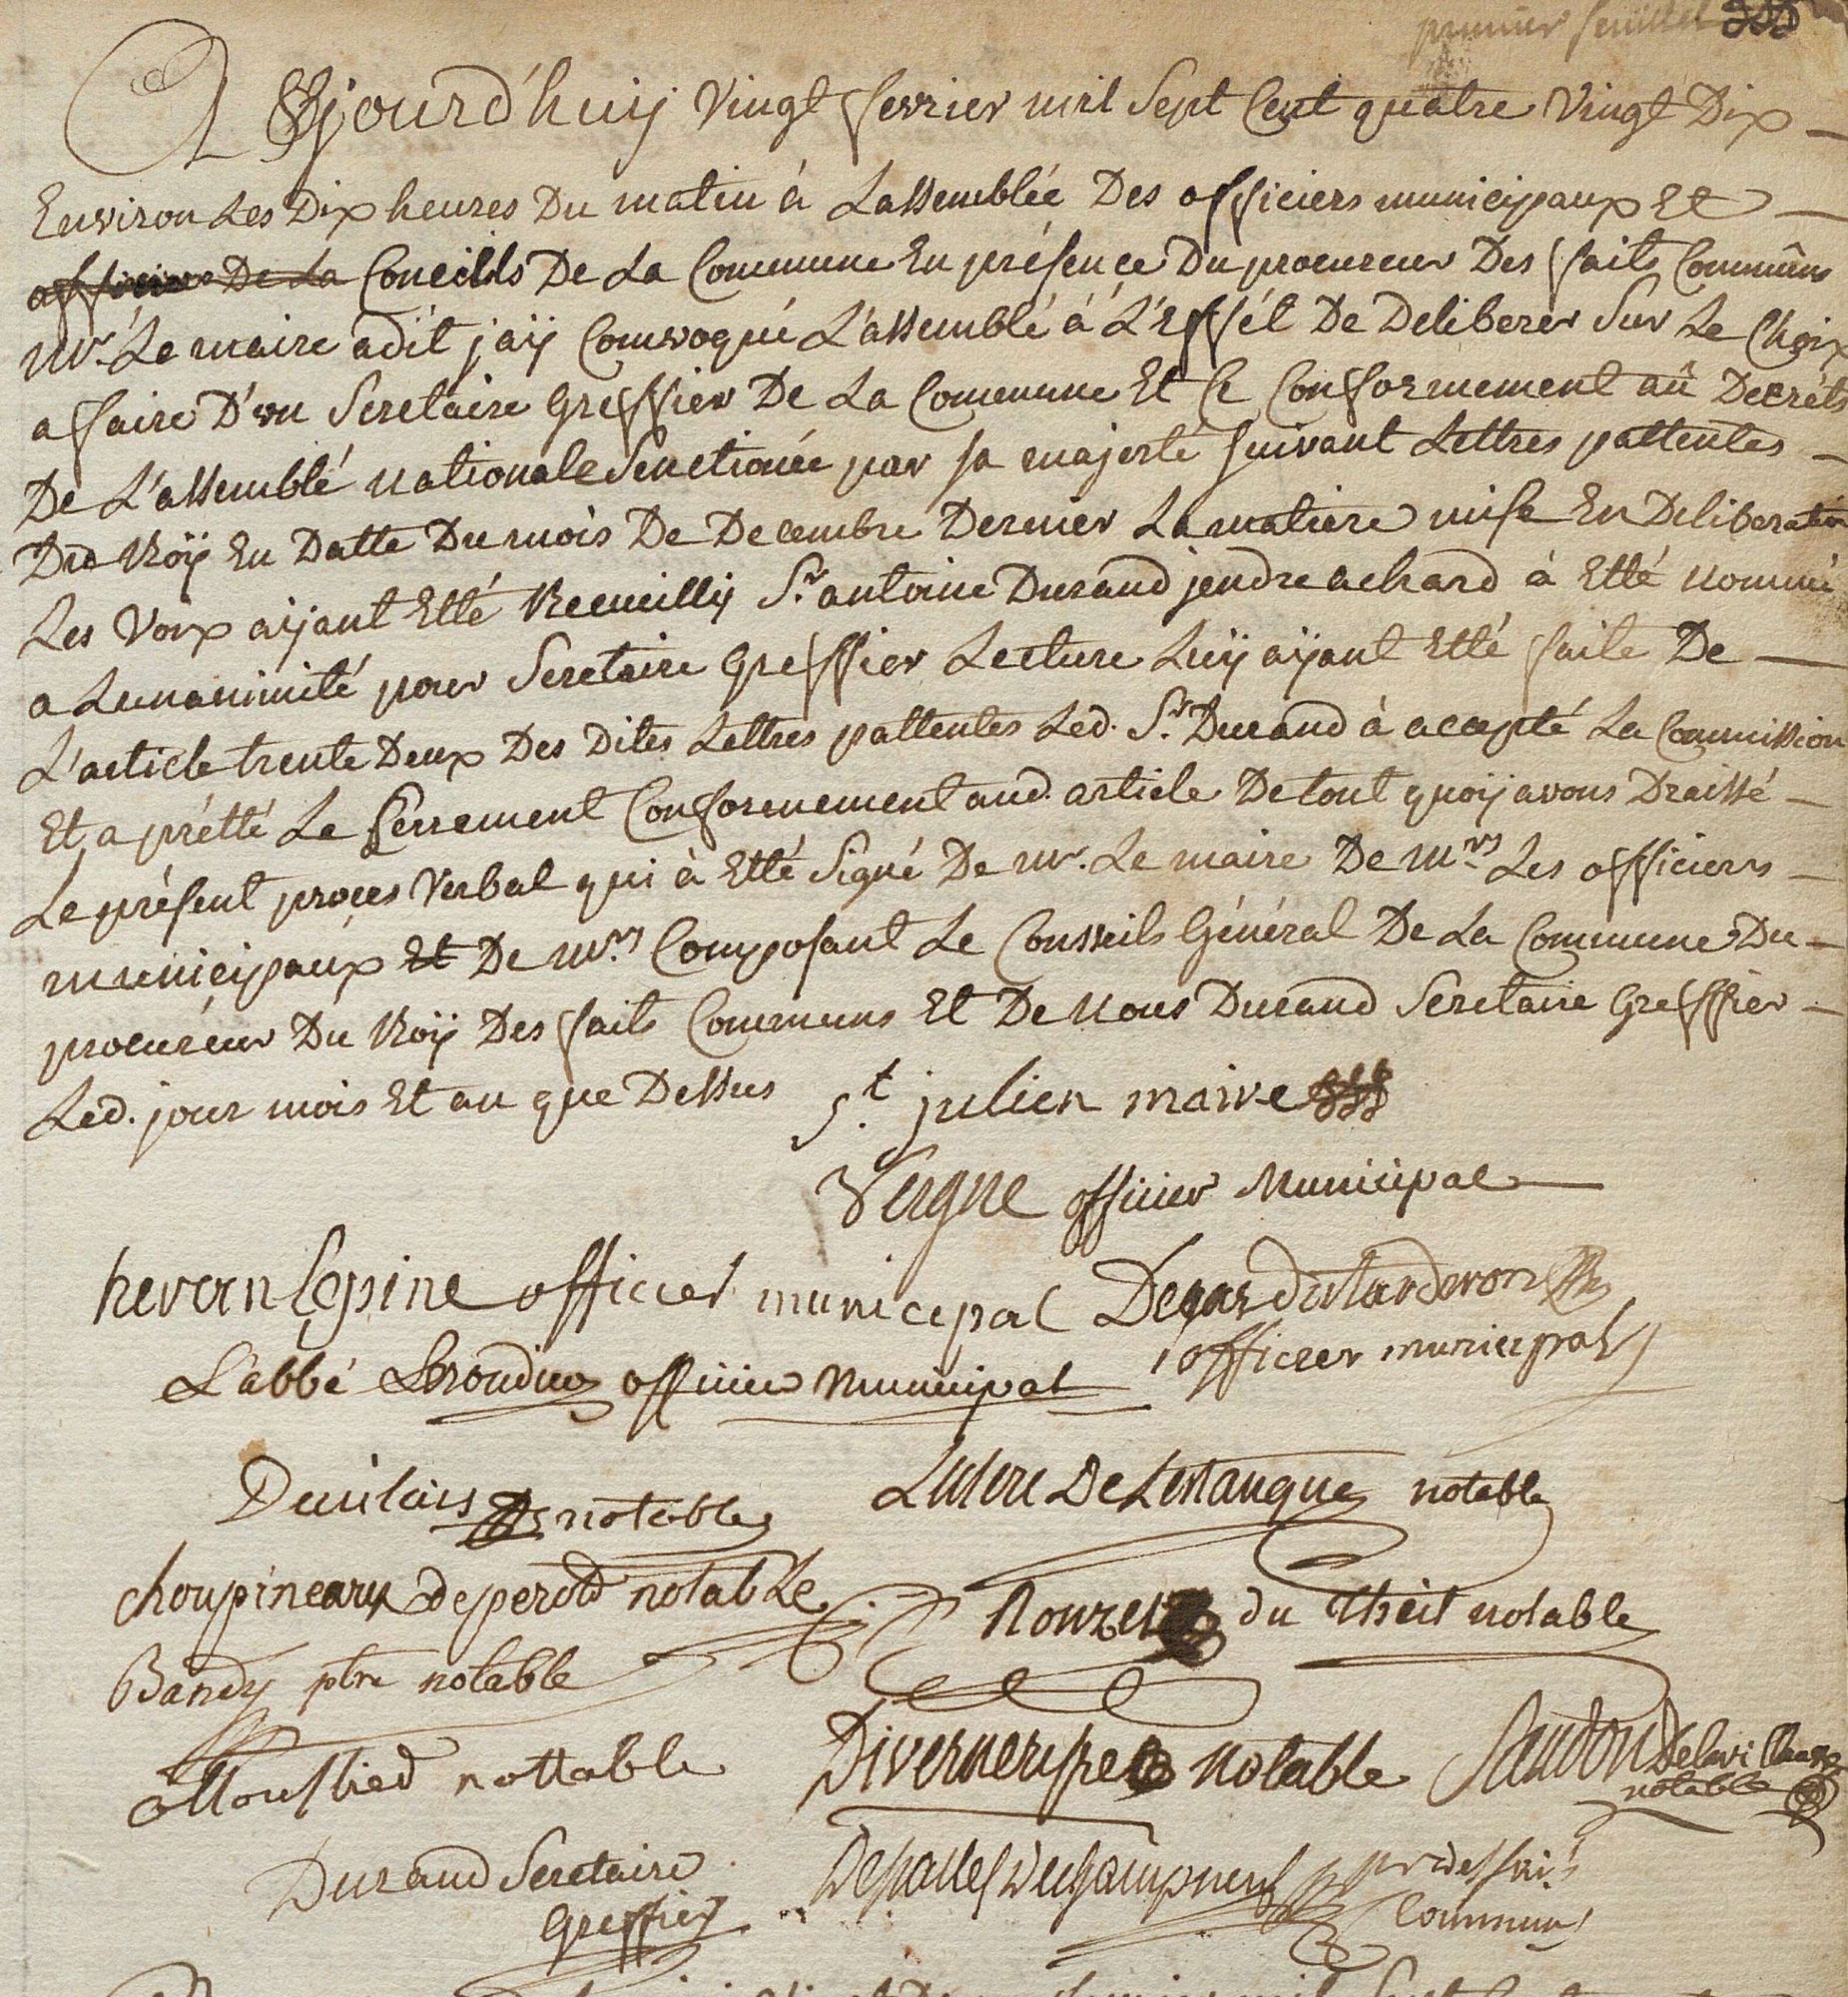 premier feuillet
Aujourd'huij Vingt fevrier mil Sept Cent quatre Vingt Dix
Environ Les Dix heures Du matin à Lassemblée Des officiers municipaux Et
officiers De La Coneills De La Commune En présence Du procureur Des faits Commûns
Mr. Le maire adit jaÿ Convoqué L'assemblé à L'Effét De Deliberer Sur Le Choix
a faire D'un Seretaire Greffier De La Commune Et Ce Conformement aû Decréts
De L'assemblé nationale Senctionée par sa majesté suivant Lettres pattentes
Du Roÿ En Datte Du mois De Decembre Dernier La matiere mise En Deliberation
Les Voix aÿant Etté Recueillÿ Sr. antoine Durand jendre achard à Etté nommé
a Lunanimité pour Seretaire Greffier Lecture Luÿ aÿant Etté faite De
L'article trente Deux Des Dites Lettres pattentes Led. Sr. Durand à accepté La Commission
Et a prétté Le Serrement Conformement aud. article De tout quoÿ avons Draissé
Le présent proces Verbal qui à Etté Signé De mr. Le maire De mrs Les officiers
municipaux Et De mrs. Composant Le Consseils Général De La Commune Du
procureur Du Roÿ Des faits Communs Et De Nous Durand Seretaire Greffier
Led. jour mois Et an que Dessus St. julien maire
Vergne officier Municipal
officier municipal
officier municipal
L'abbé officier Municipal
notable
notable
choupineaux deperotd notable
Rouzet du Theil notable
Bandy ptre notable
nottable
notable
notable
Durand Seretaire
Greffier
Commun